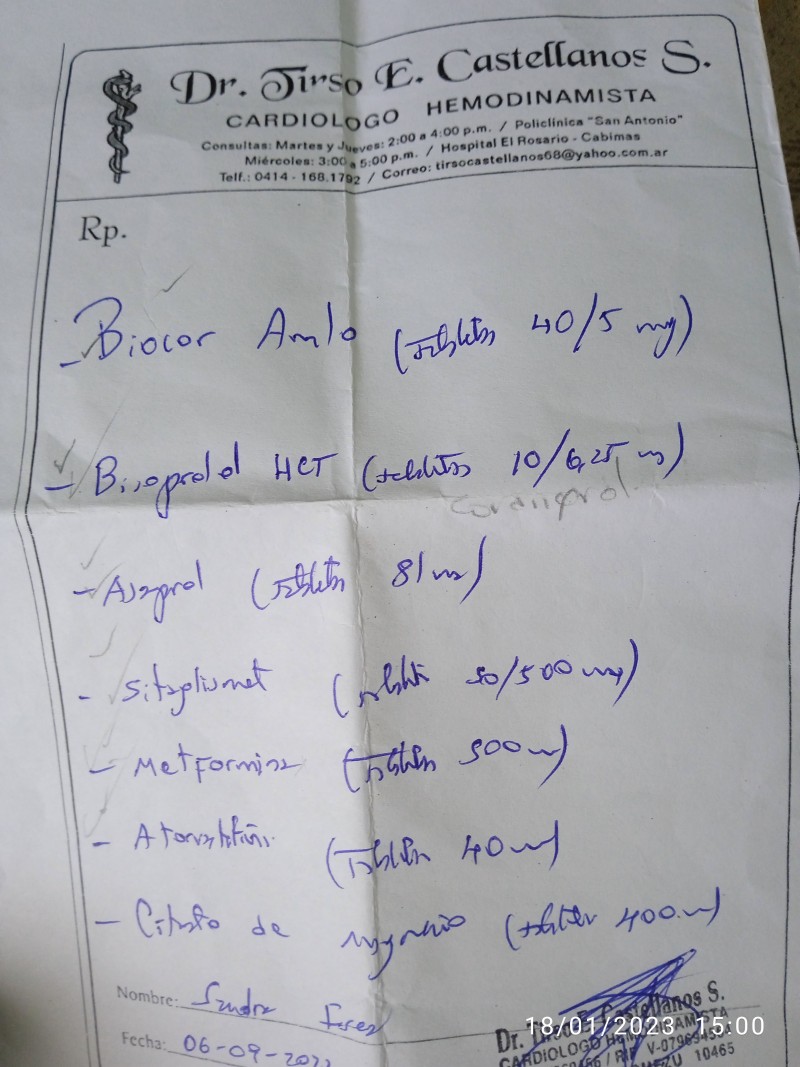 Dr. Tirso E. Castellanos S.
CARDIOLOGO HEMODINAMISTA
Consultas: Martes y Jueves: 2:00 a 4:00 p.m. / Policlínica "San Antonio"
Miércoles: 3:00 a 5:00 p.m. / Hospital El Rosario - Cabimas
Telf.: 0414 - 168.1792 / Correo: tirsocastellanos68@yahoo.com.ar
Rp.
- Biocor Amlo (tabletas 40/5 mg)
- Bisoprolol HCT (tabletas 10/6,25 mg)
- Asaprol (tabletas 81 mg)
- Sitaglismet (tableta 50/500 mg)
- Metformina (tabletas 500 mg)
- Atorvastatina (Tabletas 40 mg)
- Citrato de magnesio (tabletas 400 mg)
Nombre: Sandra
Fecha: 06-09-2022
Dr. Tirso E. Castellanos S.
CARDIOLOGO HEMODINAMISTA
10465
18/01/2023 15:00